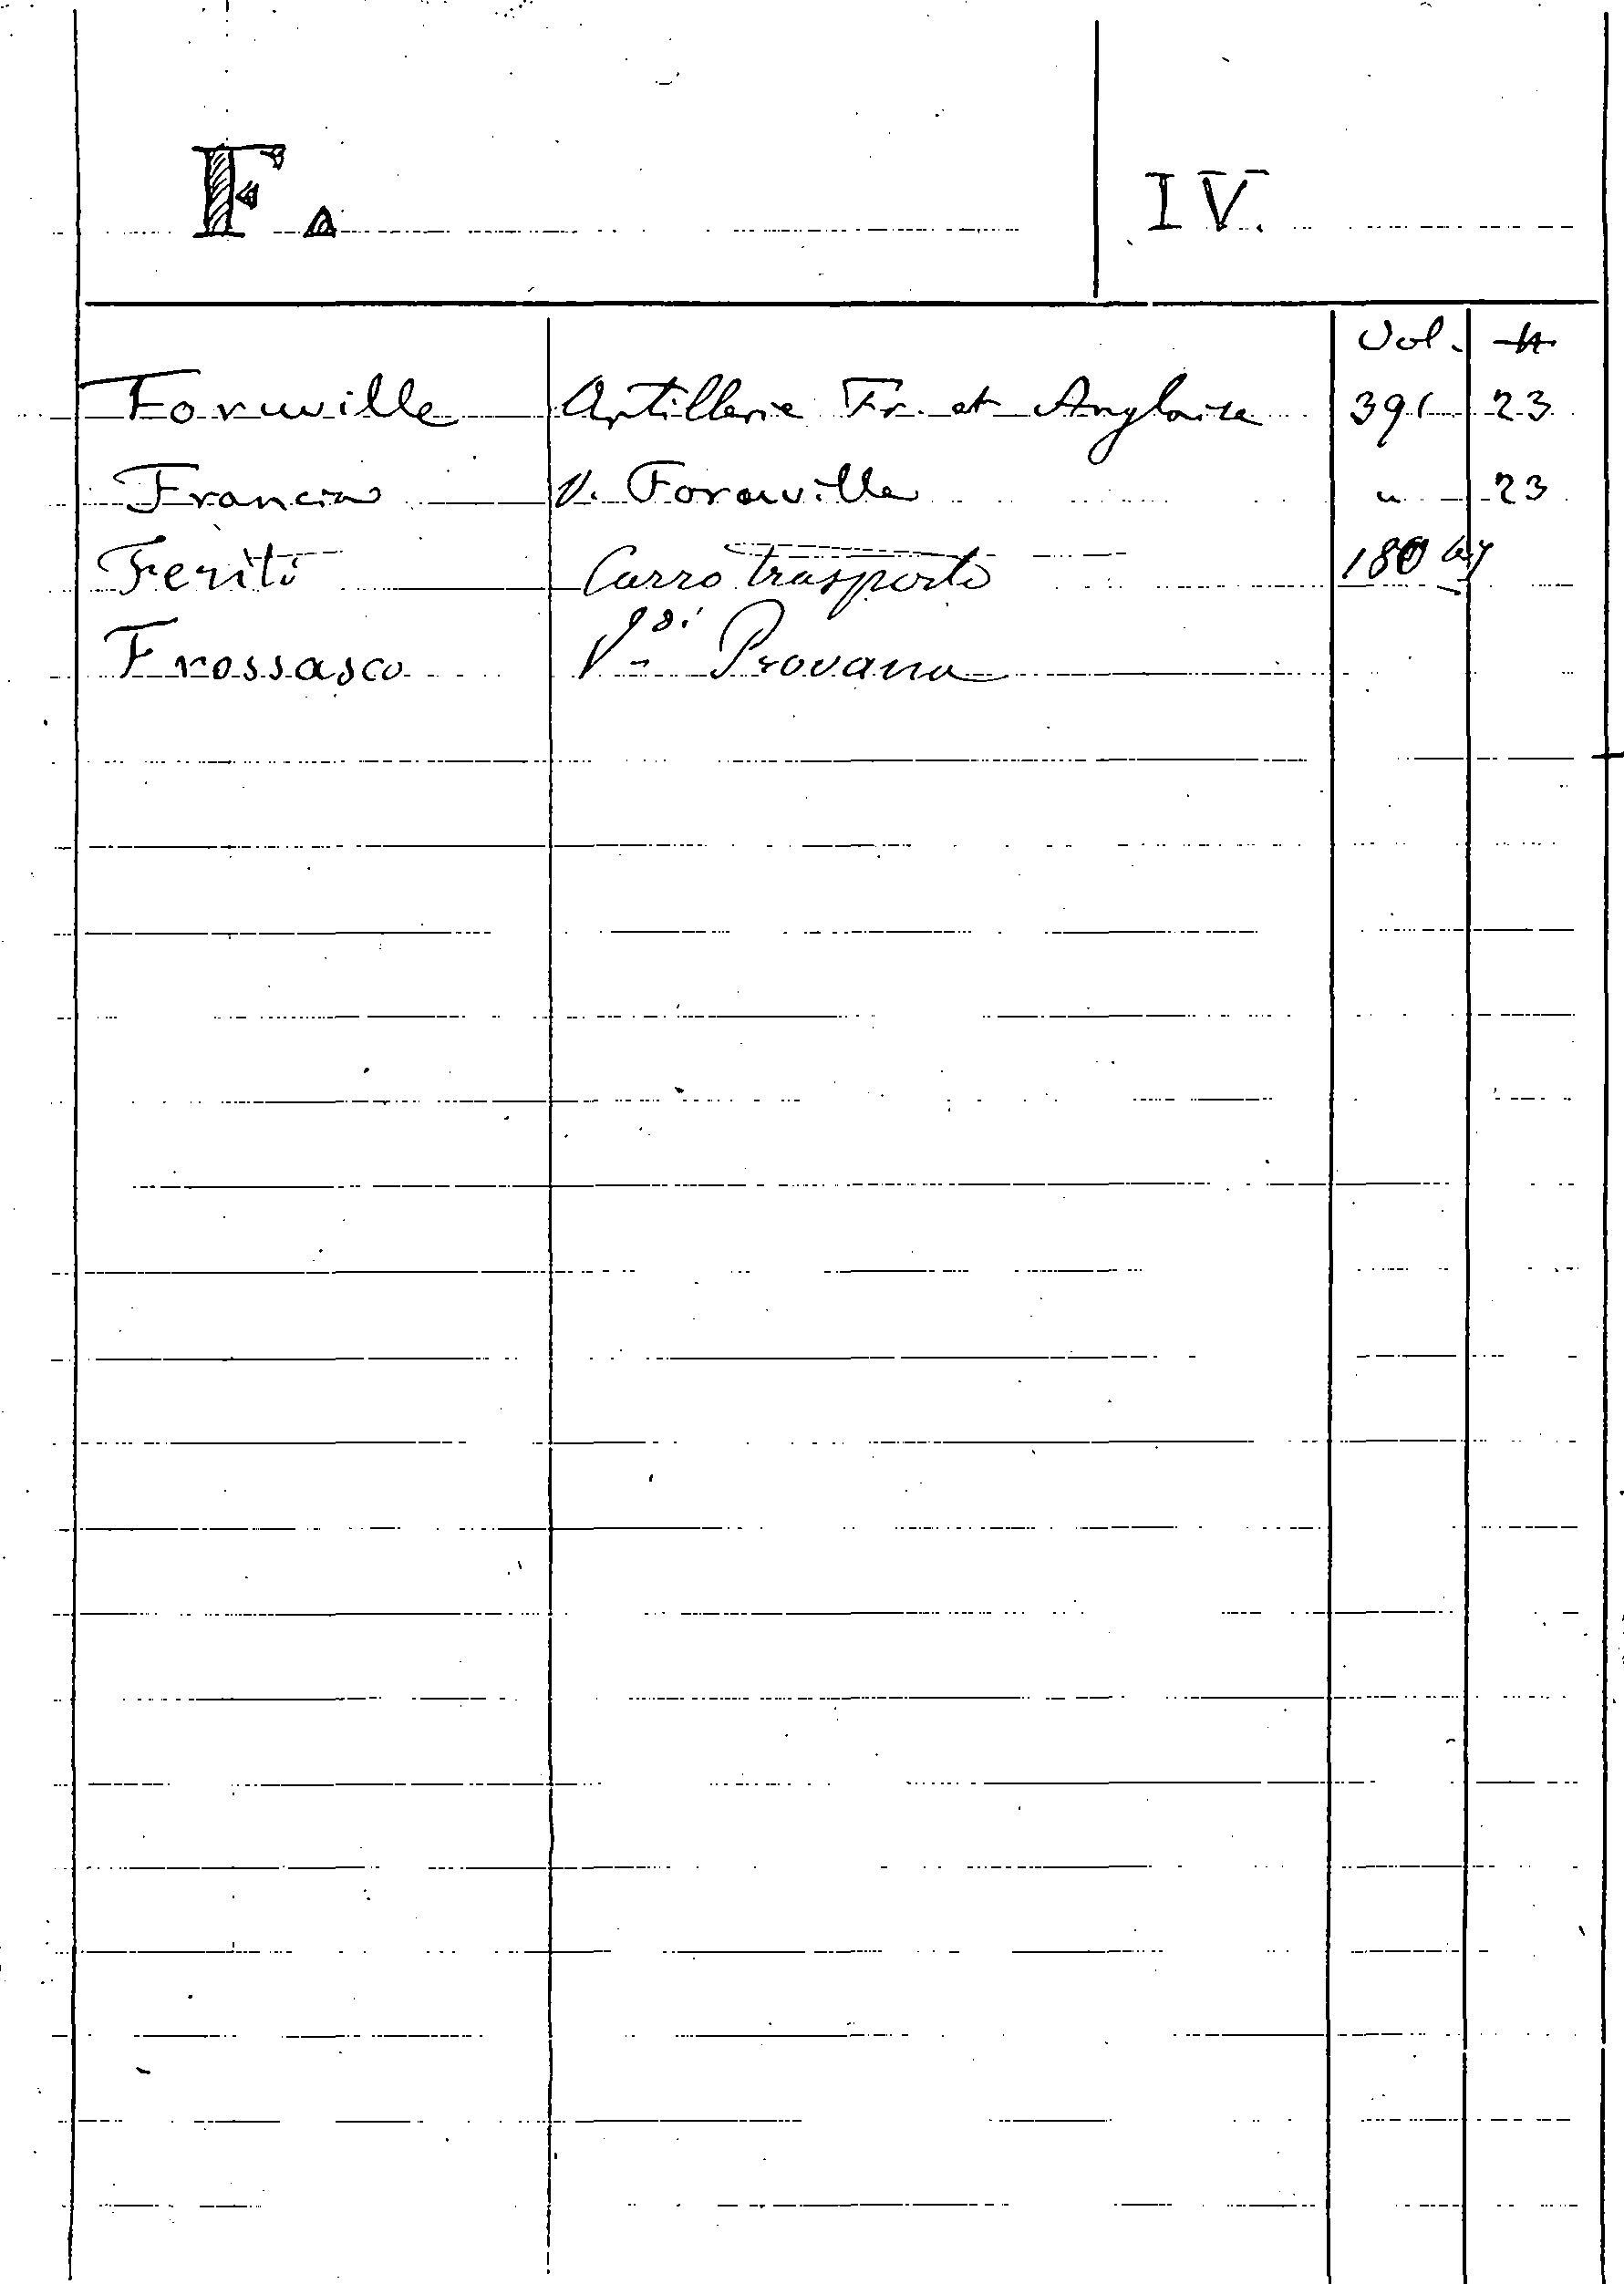 F. IV.
Vol. N.
Foruville Artillerie Fr. et Anglaise 391 23
Francia V. Foruville " 23
Feriti Carro trasporto 180
Frossasco V. Provana